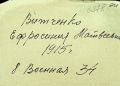 Витченко
Ефросиния Матвеевн
1915г.
8 Военная 34